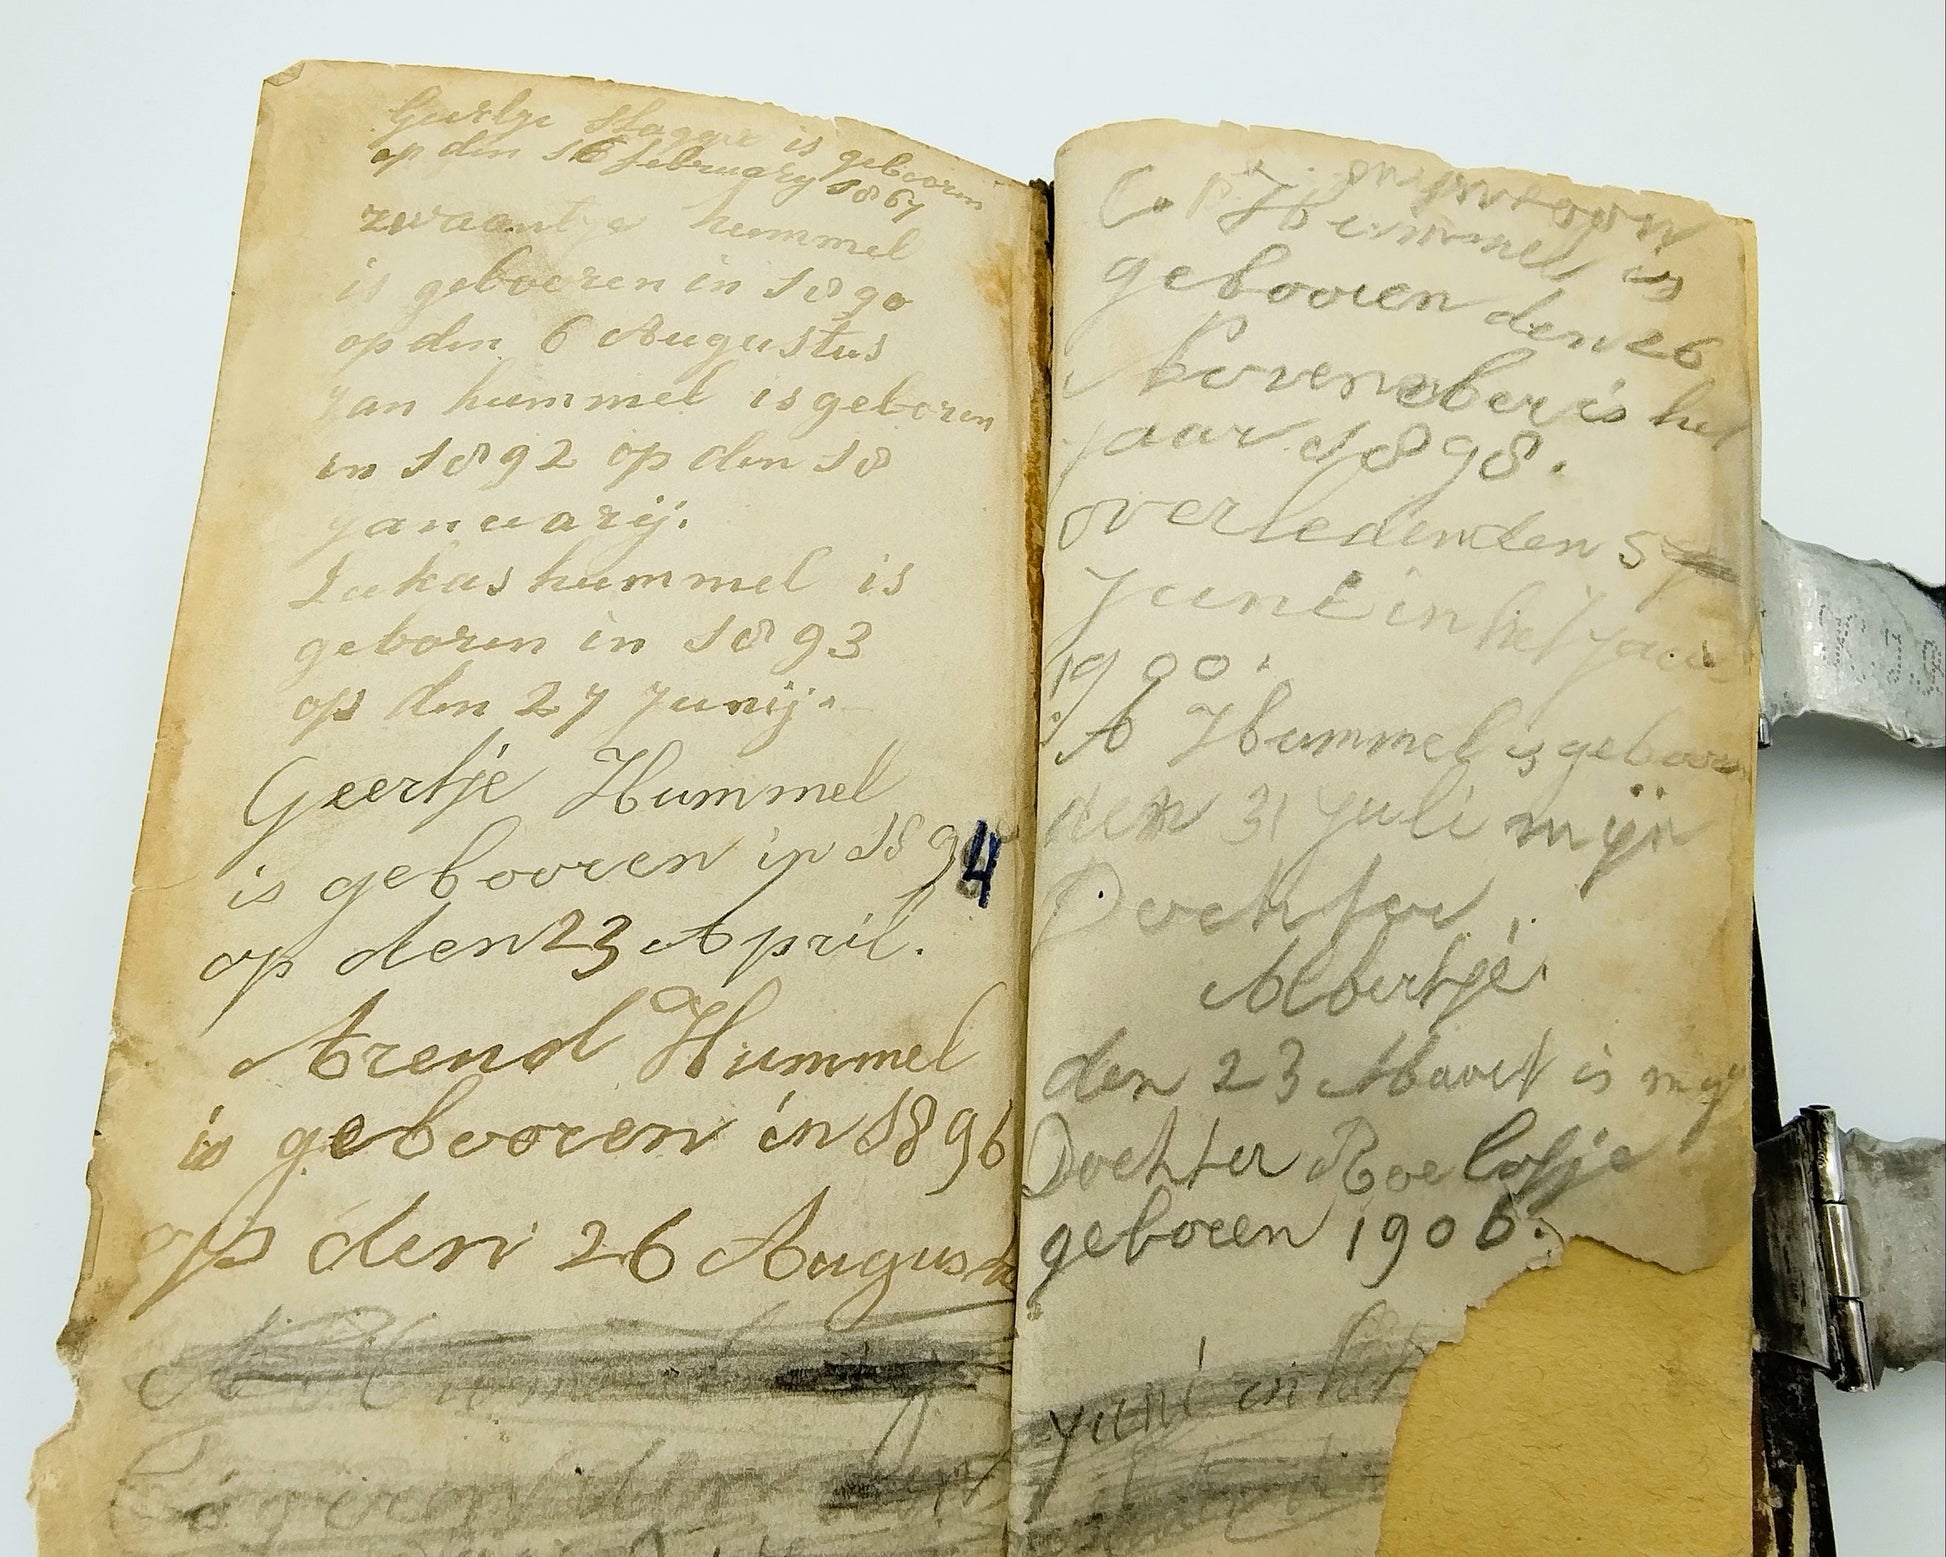 Geertje Slagger is geboren
op den 16 february 1867
zwaantje hummel
is gebooren in 1890
op den 6 Augustus
Jan hummel is geboren
in 1892 op den 18
january.
Lukas hummel is
geboren in 1893
op den 27 Junij.
Geertje Hummel
is gebooren in 1894
op den 23 April.
Arend Hummel
is gebooren in 1896
op den 26 August
Hummel is
gebooren den 26
November is het
jaar 1898.
overleden den 5
Juni in het Jaar
1900.
A Hummel is geboor
den 31 Juli mijn
Dochter
Albertje.
den 23 Maart is my
Dochter Roelofje
geboren 1906.
Juni in het